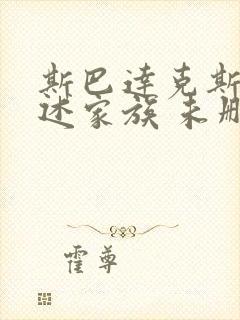 斯巴达克斯
述家族未册
霍尊